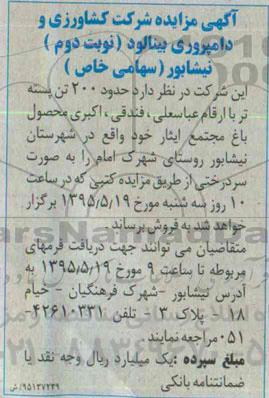 آگهی مزایده شرکت کشاورزی و
دامپروری بینالود (نوبت دوم )
نیشابور (سهامی خاص )
این شرکت در نظر دارد حدود ۲۰۰ تن پسته
تر با ارقام عباسعلی ، فندقی ، اکبری محصول
باغ مجتمع ایثار خود واقع در شهرستان
نیشابور روستای شهرک امام را به صورت
سردرختی از طریق مزایده کتبی که در ساعت
۱۰ روز سه شنبه مورخ ۱۳۹۵/۵/۱۹ برگزار
خواهد شد به فروش برساند .
متقاضیان می توانند جهت دریافت فرمهای
مربوطه تا ساعت ۹ مورخ ۱۳۹۵/۵/۱۹ به
آدرس نیشابور -شهرک فرهنگیان - خیام
۱۸ - پلاک ۳ - تلفن ۴۲۶۱۰۳۳۱-
۰۵۱ مراجعه نمایند .
مبلغ سپرده : یک میلیارد ریال وجه نقد یا
ضمانتنامه بانکی
۹۵۱۳۷۲۳۹/ش